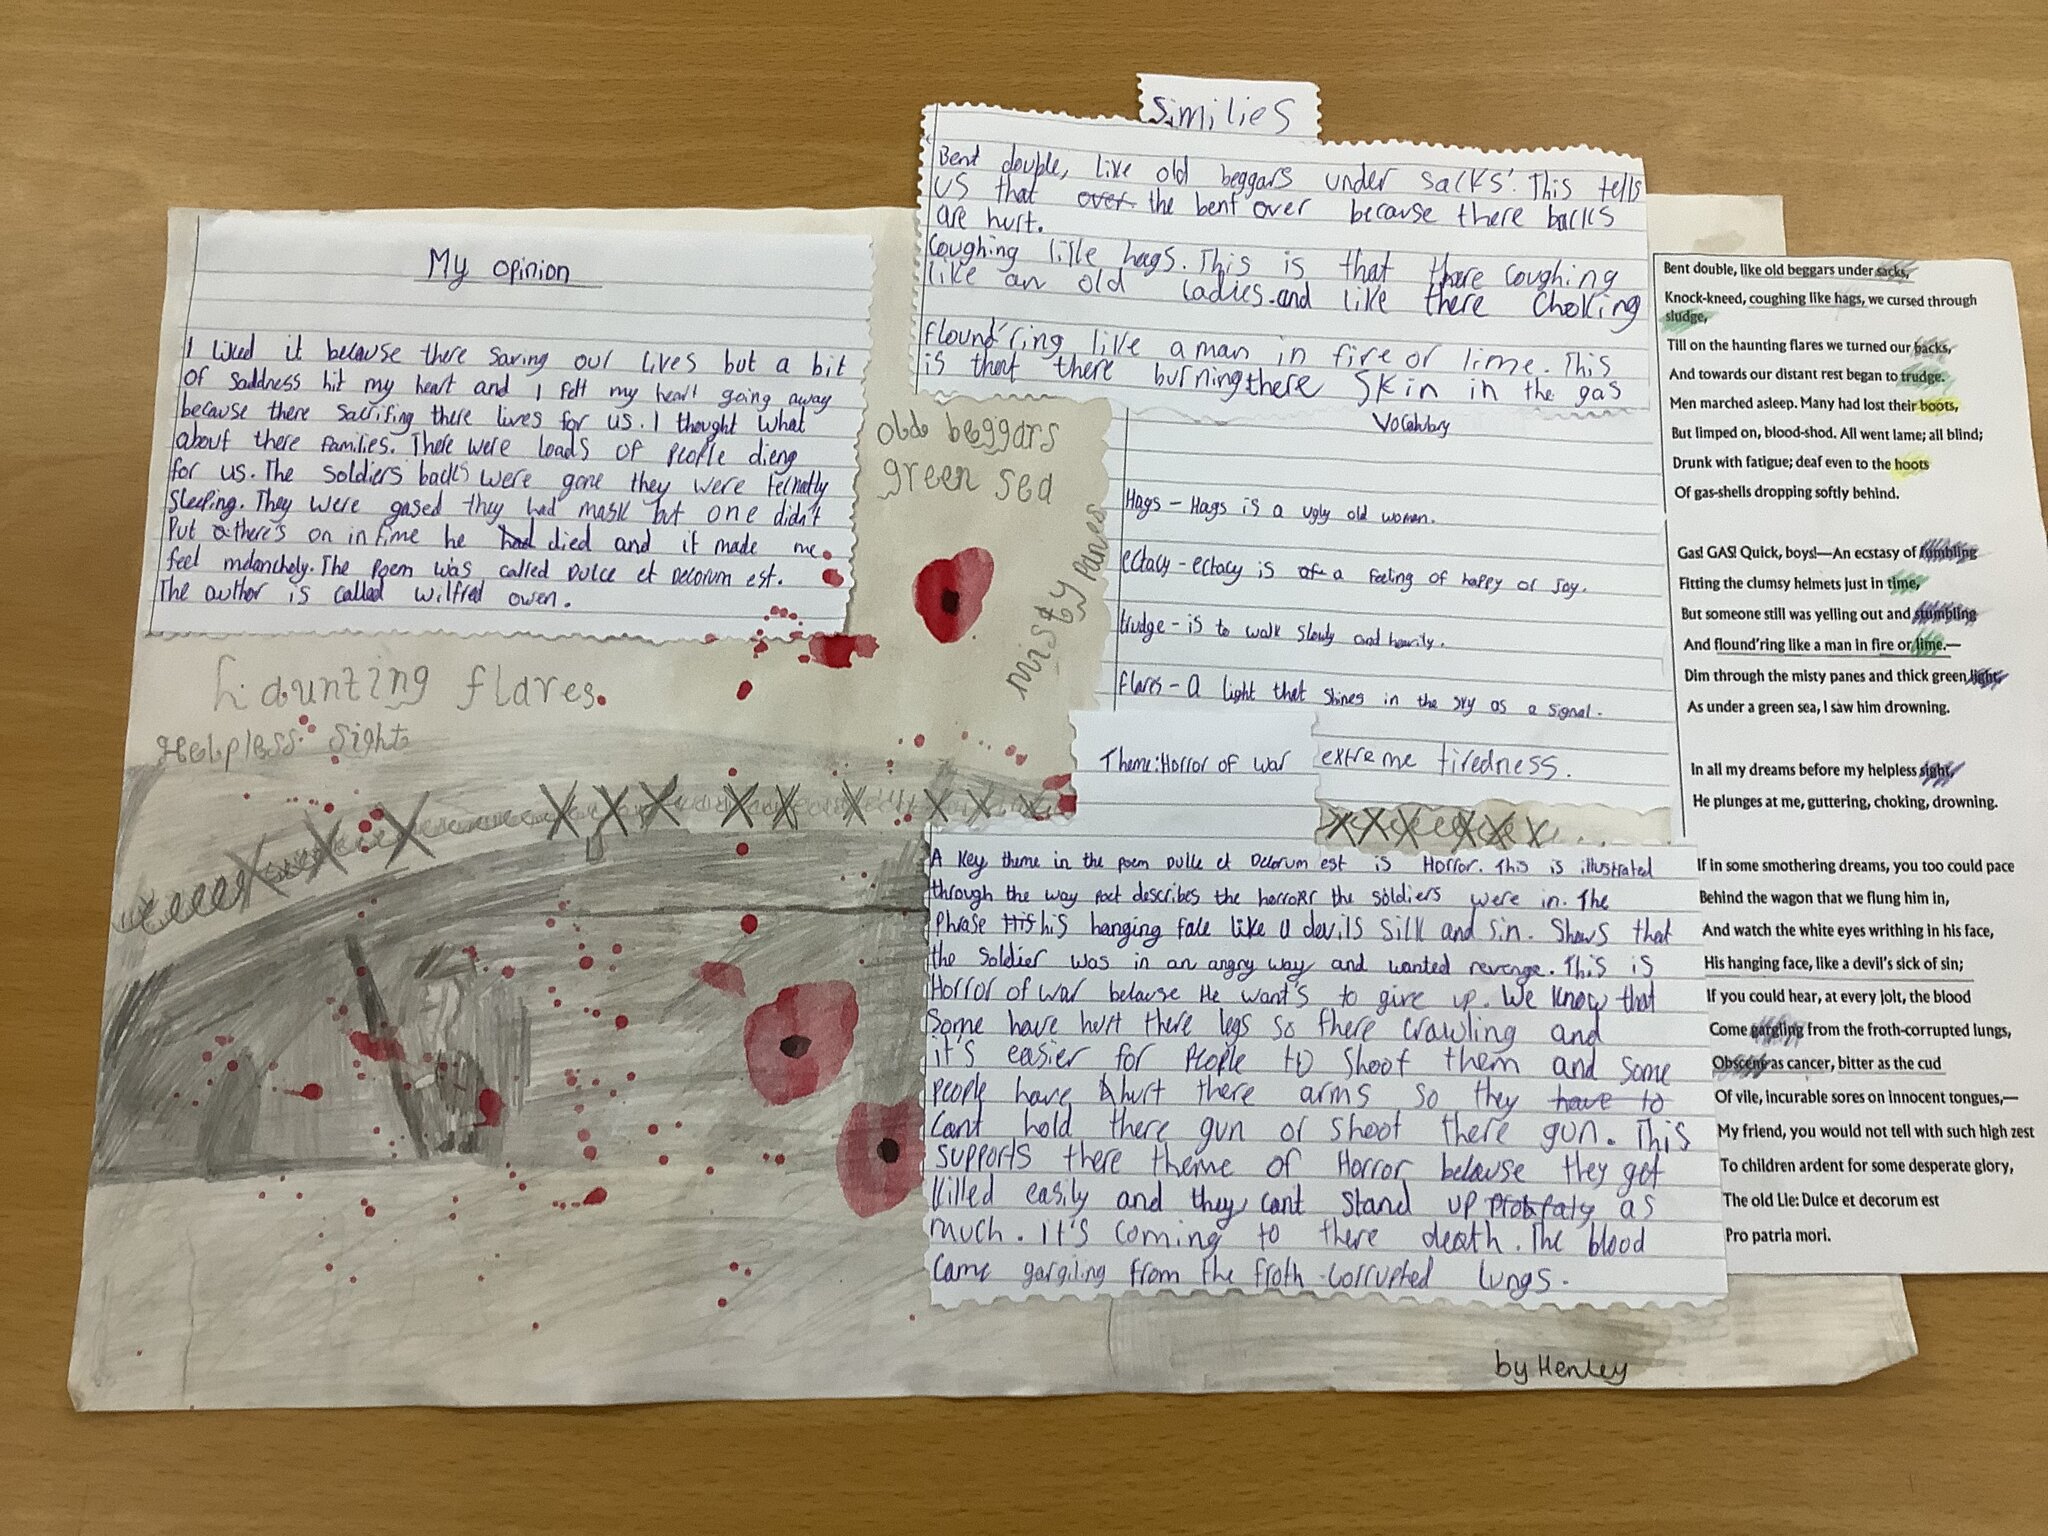 My opinion
I liked it because there saving our lives but a bit
of saddness hit my heart and I felt my heart going away
because there sacrifing there lives for us. I thought what
about there families. There were loads of people dieng
for us. The soldiers backs were gone they were
sleeping. They were gased they had mask but one didn't
Put there's on in time he had died and it made me
feel melancholy. The poem was called Dulce et Decorum est.
The author is called Wilfred Owen.
haunting flares.
Helpless sight
Similies
Bent double, like old beggars under sacks'. This tells
us that over the bent over because there backs
are hurt.
Coughing like hags. This is that there coughing
like an old ladies and like there choking
flound'ring like a man in fire or lime. This
is that there burning there skin in the gas
olde beggars
green sea
misty panes
Vocabulary
Hags - Hags is a ugly old women.
ectacy - ectacy is of a feeling of happy or joy.
trudge - is to walk slowly and heavily.
flares - A light that shines in the sky as a signal.
extreme tiredness.
Theme: Horror of war
A key theme in the poem Dulce et Decorum est is Horror. This is illustrated
through the way poet describes the horror the soldiers were in. The
phrase His his hanging face like a devils silk and sin. Shows that
the soldier was in an angry way and wanted revenge. This is
Horror of war because He want's to give up. We know that
Some have hurt there legs so there crawling and
it's easier for people to shoot them and some
people have hurt there arms so they have to
cant hold there gun or shoot there gun. This
supports there theme of Horror because they get
killed easily and they cant stand up as
much. It's coming to there death. The blood
came gargiling from the froth-corrupted lungs.
by Henley
Bent double, like old beggars under sacks,
Knock-kneed, coughing like hags, we cursed through
sludge,
Till on the haunting flares we turned our backs,
And towards our distant rest began to trudge.
Men marched asleep. Many had lost their boots,
But limped on, blood-shod. All went lame; all blind;
Drunk with fatigue; deaf even to the hoots
Of gas-shells dropping softly behind.
Gas! GAS! Quick, boys!—An ecstasy of fumbling
Fitting the clumsy helmets just in time,
But someone still was yelling out and stumbling
And flound'ring like a man in fire or lime.—
Dim through the misty panes and thick green light,
As under a green sea, I saw him drowning.
In all my dreams before my helpless sight,
He plunges at me, guttering, choking, drowning.
If in some smothering dreams, you too could pace
Behind the wagon that we flung him in,
And watch the white eyes writhing in his face,
His hanging face, like a devil's sick of sin;
If you could hear, at every jolt, the blood
Come gargling from the froth-corrupted lungs,
Obscene as cancer, bitter as the cud
Of vile, incurable sores on innocent tongues,—
My friend, you would not tell with such high zest
To children ardent for some desperate glory,
The old Lie: Dulce et decorum est
Pro patria mori.